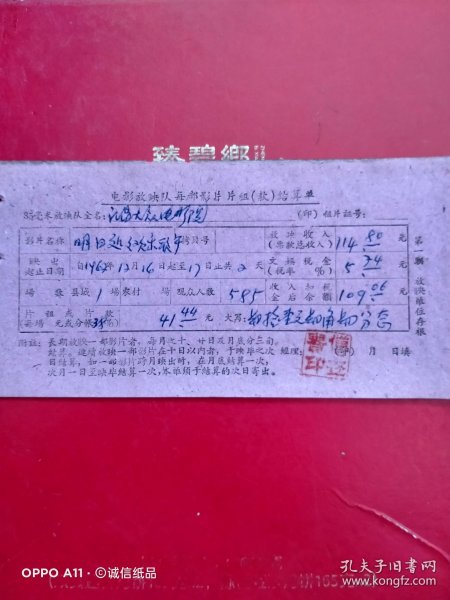 臻碧鄉
电影放映队每部影片片组(款)结算单
35毫米放映队全名: (印) 租片证号:
影片名称 拷贝号 放映收入(票款总收入) 114.80 元
映出起止日期 自1962年12月16日起至17日止共2天 文娱税金(税率 %) 5.74 元
场数 县城1场农村 场观众人数 585 收入扣税金后余额 109.06 元
片租或片款(每场 元或分帐38%) 41.44 元 大写: 肆拾壹元肆角肆分
附注: 长期放映一部影片者,每月之十、廿日及月底分三旬
结算。连续放映一部影片在十日以内者,于映毕之次 经理: (印) 月 日填
日结算。如一部影片跨月映出时,在月底结算一次,
次月一日至映毕结算一次,本单须于结算的次日寄出。
第一联 放映单位存根
OPPO A11 · ©诚信纸品
孔夫子旧书网
www.kongfz.com